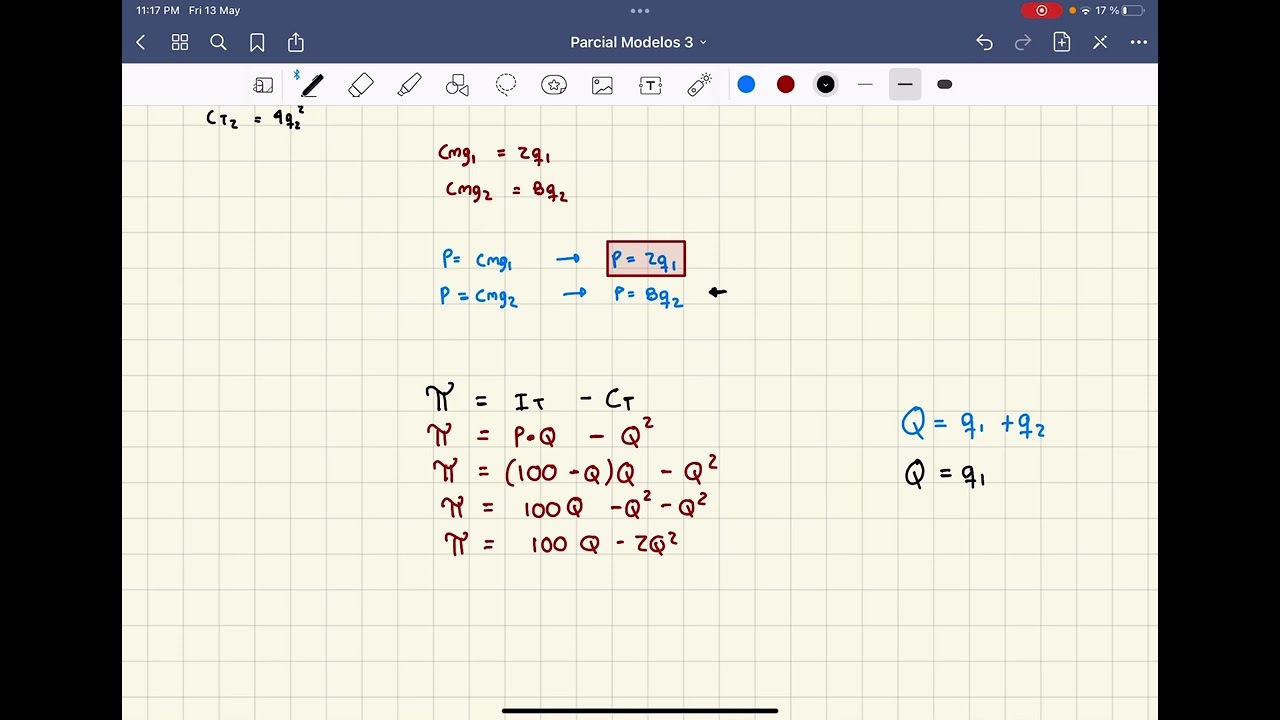 11:17 PM Fri 13 May
17 %
Parcial Modelos 3
T
C_{T_2} = 4q_2^2
Cmg_1 = 2q_1
Cmg_2 = 8q_2
P = Cmg_1 → P = 2q_1
P = Cmg_2 → P = 8q_2 ←
π = I_T - C_T
π = P•Q - Q^2
π = (100 - Q)Q - Q^2
π = 100Q - Q^2 - Q^2
π = 100Q - 2Q^2
Q = q_1 + q_2
Q = q_1